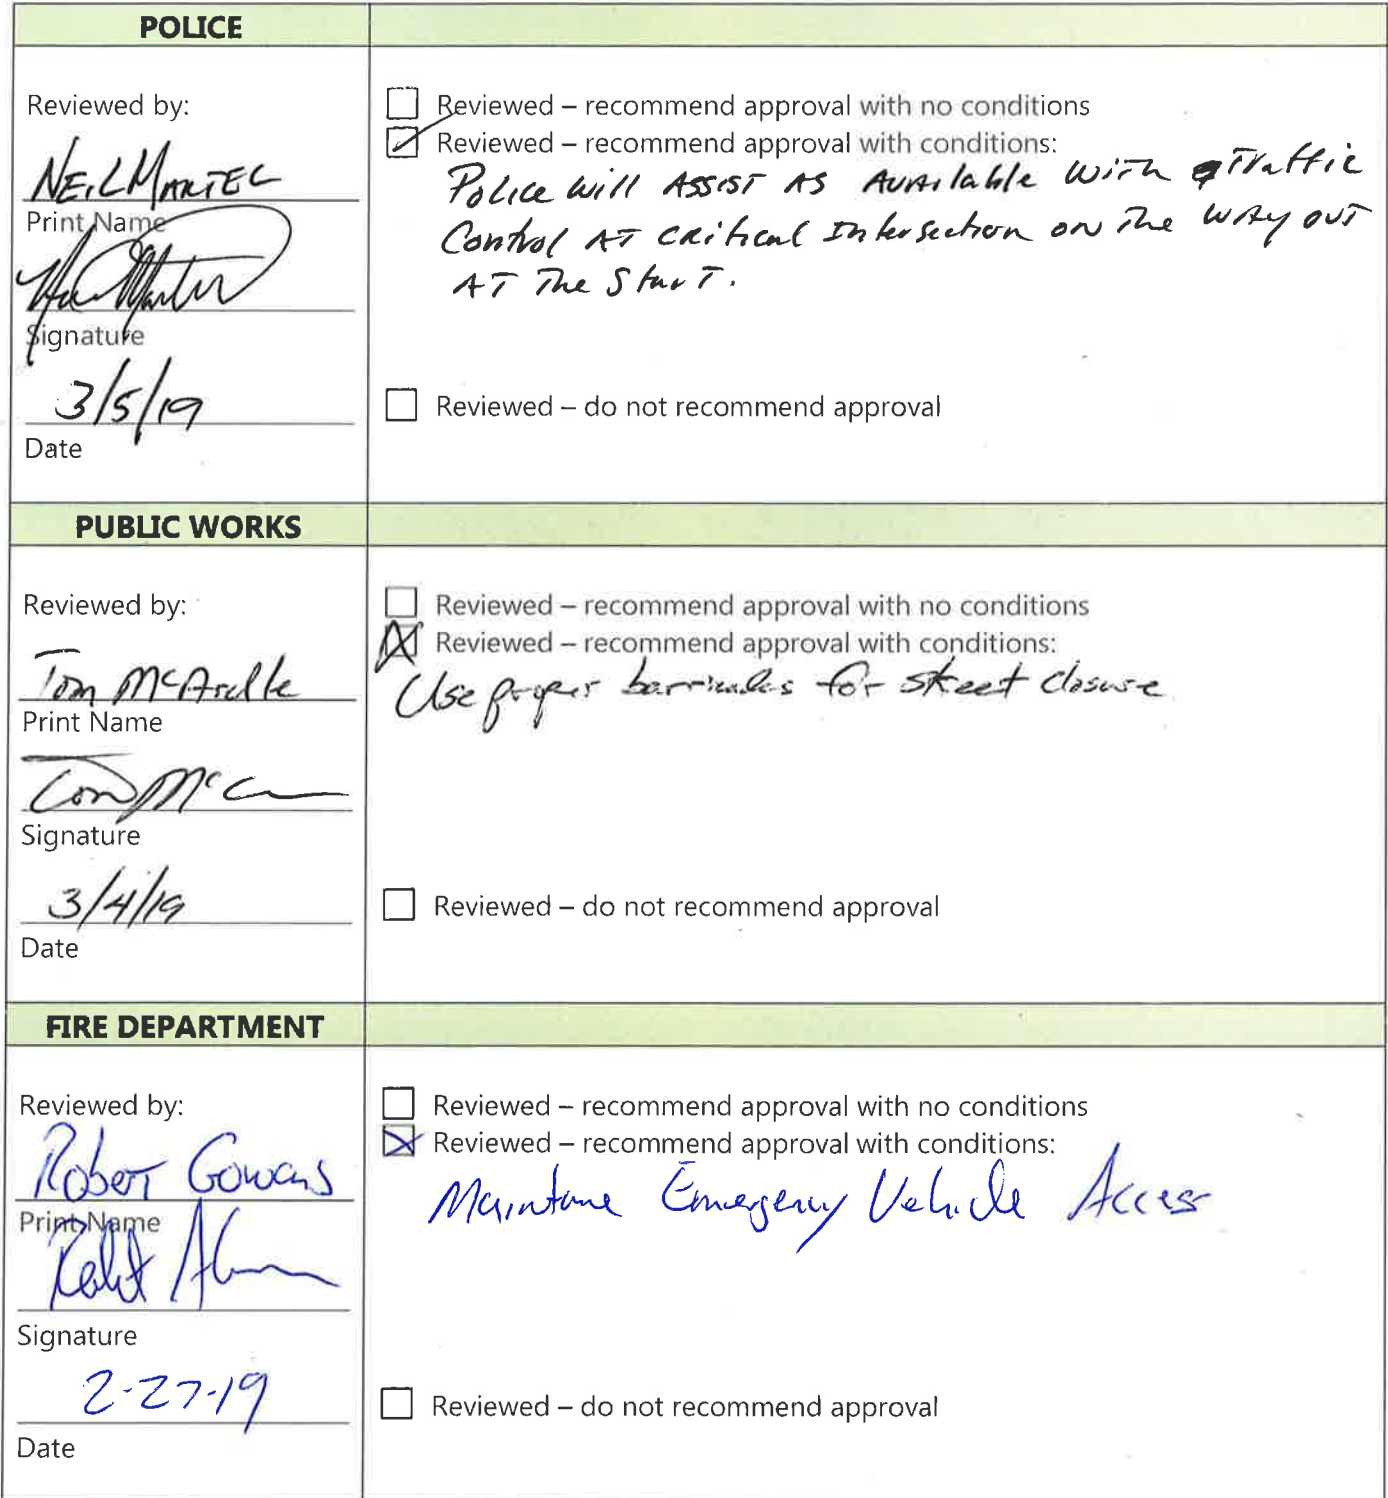 POLICE
Reviewed by:
NEIL MARTEL
Print Name
Signature
3/5/19
Date
Reviewed – recommend approval with no conditions
Reviewed – recommend approval with conditions:
Police will Assist As Available with Traffic
Control AT critical Intersection on The way out
AT The Start.
Reviewed – do not recommend approval
PUBLIC WORKS
Reviewed by:
Tom McArdle
Print Name
Tom Mc
Signature
3/4/19
Date
Reviewed – recommend approval with no conditions
Reviewed – recommend approval with conditions:
Use proper barricades for street closure
Reviewed – do not recommend approval
FIRE DEPARTMENT
Reviewed by:
Robert Gowans
Print Name
Signature
2-27-19
Date
Reviewed – recommend approval with no conditions
Reviewed – recommend approval with conditions:
Maintane Emergency Vehicle Access
Reviewed – do not recommend approval